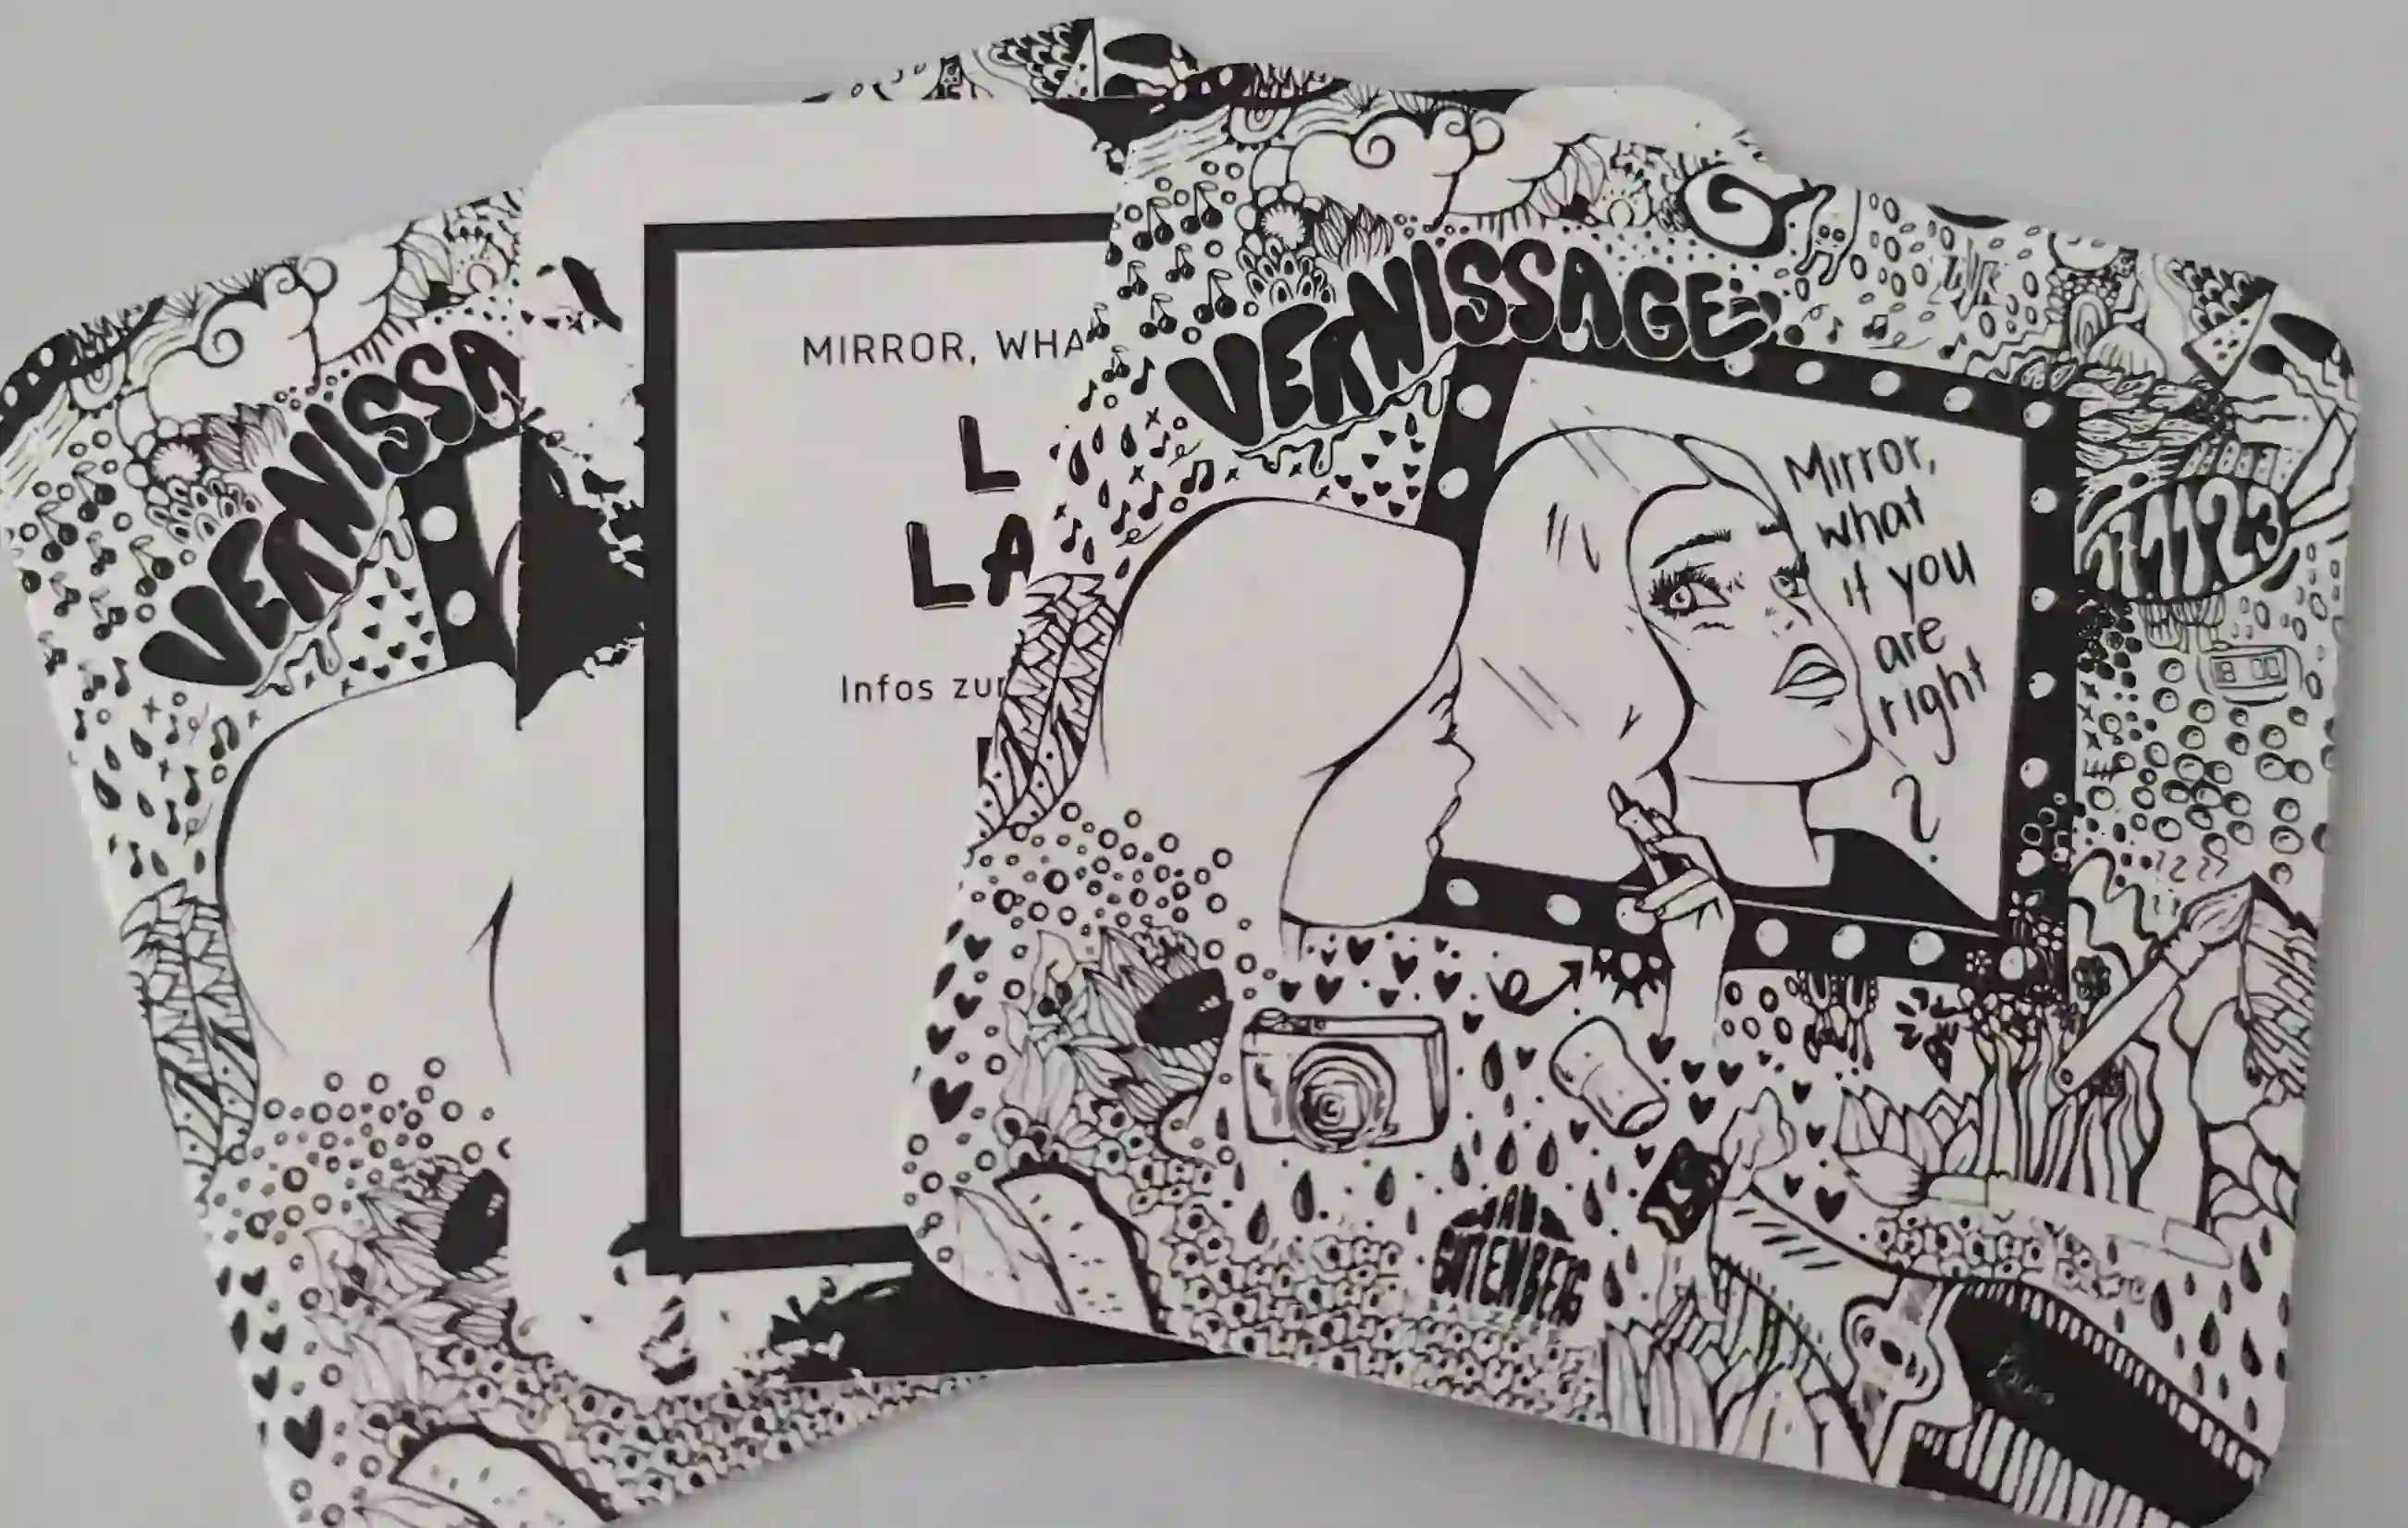 VERNISSA
MIRROR, WHA
L
LA
Infos zur
VERNISSAGE
Mirror,
what
if you
are
right
?
GUTENBERG